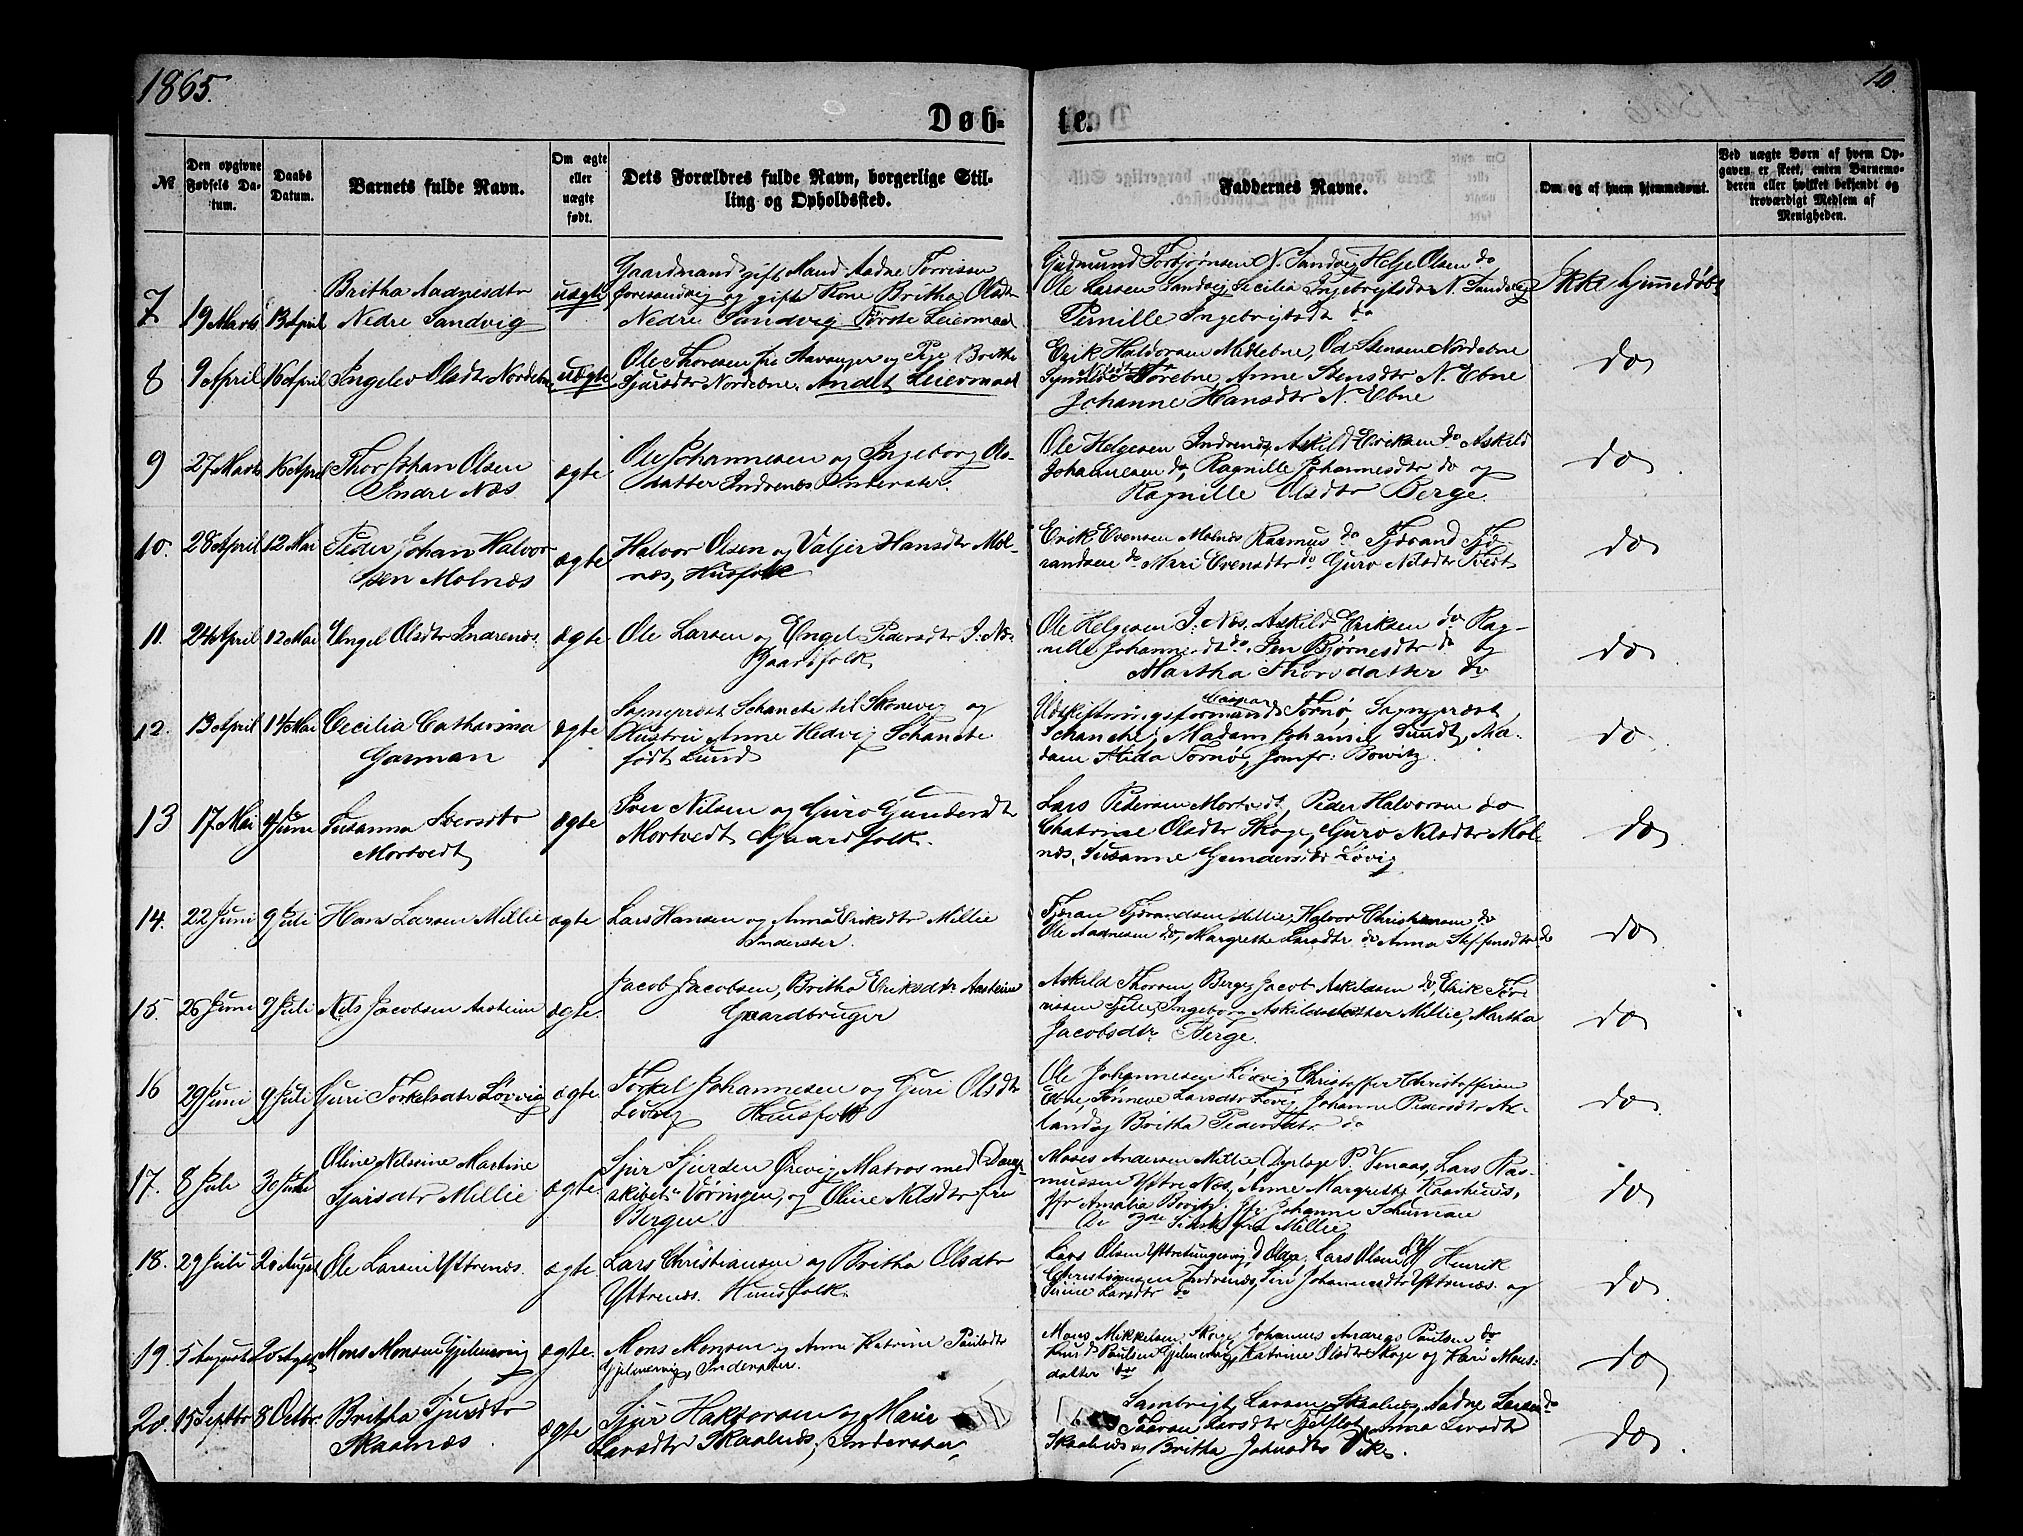 1865.
10.
Døb-
te.
№
Den opgivne Fødsels Datum.
Daabs Datum.
Barnets fulde Navn.
Om ægte eller uægte født.
Dets Forældres fulde Navn, borgerlige Stilling og Opholdsted.
Faddernes Navne.
Om og af hvem hjemmedøbt.
Ved uægte Børn af hvem Opgaven er skeet, enten Barnemoderen eller hvilket bekjendt og troværdigt Medlem af Menigheden.
7 19 Marts 13 April Britha Aadnesdtr
Nedre Sandvig
uægte
Gaardmand gift Mand Aadne Torrissen
og gift Kone Britha Olsdtr
Nedre Sandvig Første Leiermaal
Gudmund Torbjørnsen N. Sandvig Helje Olsen do
Ole Larsen Sandvig Cecilia Ingebrigtsdtr N. Sandvig
Pernille Ingebrigtsdt do
Ikke hjemmedøbt
8 9 April 16 April Ingelev Olsdtr Nordebne
uægte
Ole Thoresen fra Stavanger og Pige Britha
Sjursdtr Nordebne. Andet Leiermaal
Erik Haldorsen Midtebne, Od Stensen Nordebne
Anne Stensdtr N. Ebne
Johanne Hansdtr N. Ebne
do
9 27 Marts 16 April Thor Johan Olsen
Indre Næs
ægte
Ole Johannesen og Ingeborg Ols-
datter Indrenæs Inderster.
Ole Helgesen Indrenæs, Askild Eriksen do Askild
Johannesen do, Ragnille Johannesdtr do og
Ragnille Olsdtr Berge.
do
10. 28 April 12 Mai Peder Johan Halvor
sen Molnæs
ægte
Halvor Olsen og Valjer Hansdtr Mol-
næs, Husfolk
Erik Evensen Molnæs Rasmus do Tjærand Tjæ-
randsen do Mari Evensdtr do Guro Nilsdtr Tvedt
do
11. 24 April 12 Mai Engel Olsdtr Indrenæs
ægte
Ole Larsen og Engel Pedersdtr I. Næs
Gaardfolk
Ole Helgesen I. Næs, Askild Eriksen do Rag-
nille Johannesdt do, Bjørnesdtr do og
Martha Thorsdatter do
do
12. 13 April 14 Mai Cecilia Catharina
Garman
ægte
Sognepræst Schanche til Skonevig og
Hustru Anne Hedvig Schanche
født Lund
Udskiftningsformand Caspar Tornø, Sognepræst
Schanche, Madam Johanne Lundt, Ma-
dam Alida Tornø, Jomfr: Bowitz
do
13 17 Mai 4 Juni Susanna Iversdtr
Mortvedt
ægte
Iver Nilsen og Guro Gundersdt
Mortvedt Gaardfolk.
Lars Pedersen Mortvedt, Peder Halvorsen do
Chatrine Olsdtr Skoge, Guro Nilsdtr Mol-
næs, Susanne Gundersdtr Løvig
do
14. 22 Juni 9 Juli Hans Larsen Millie
ægte
Lars Hansen og Anna Eriksdtr Millie
Inderster.
Tjæran Tjærandsen Millie, Halvor Christiansen do
Ole Aadnesen do, Margrethe Larsdtr do Anna Steffensdtr do
do
15. 26 Juni 9 Juli Nils Jacobsen Aasheim
ægte.
Jacob Jacobsen, Britha Eriksdtr Aasheim
Gaardbruger
Askild Thorsen Berge, Jacob Askildsen do, Erik Tor-
rissen Ingeborg Askildsdatter Millie, Martha
Jacobsdtr Berge.
do
16 29 Juni 9 Juli Guri Torkelsdtr Løvvig
ægte
Torkel Johannesen og Guri Olsdtr
Løvvig Husfolk
Ole Johannesen Løvvig Christoffer Christoffersen
Ebne, Sønneve Larsdtr Løvig, Johanne Pedersdtr Aa-
land og Britha Pedersdtr do
do
17. 8 Juli 30 Juli Oline Nilssine Martine
Sjursdtr Millie
ægte
Sjur Sjursen Ørevig, Matros med Damp-
skibet Vøringen, og Oline Nilsdtr fra
Bergen.
Moses Andersen Millie, Dyrlæge P. Venaas, Lars Ras-
mussen Ystre Næs, Anne Margrethe Raastines,
Jfr Amalia Bowitz Jfr. Johanne Schuman
fra Millie
do
18. 29 Juli 20 August Ole Larsen Yttrenæs.
ægte
Lars Christiansen og Britha Olsdtr
Yttrenæs. Huusfolk.
Lars Olsen Lars Olsen Henrik
Christiansen Indrenæs, Siri Johannesdtr Yttrenæs. og
Sirine Larsdtr do
do
19. 5 August 20 Augst Mons Monsen Gjelmervig
ægte.
Mons Monsen og Anna Katrine Paulsdtr
Gjelmervig, Inderster.
Mons Mikkelsen Skoge, Johannes Andreas Paulsen do
Knud Paulsen Gjelmervig, Katrine Olsdtr Skoge og Kari Mons-
datter do
do
20. 15 Septbr 8 Octbr. Britha Sjursdtr
Skaalnæs
ægte
Sjur Haktorsen og Marie
Larsdtr Skaalnæs, Inderster,
Sambrigt Larsen Skaalnæs, Aadne Larsen do
Larsdtr Anna Larsdtr
Skaalnæs og Britha Johnsdtr Vik
do